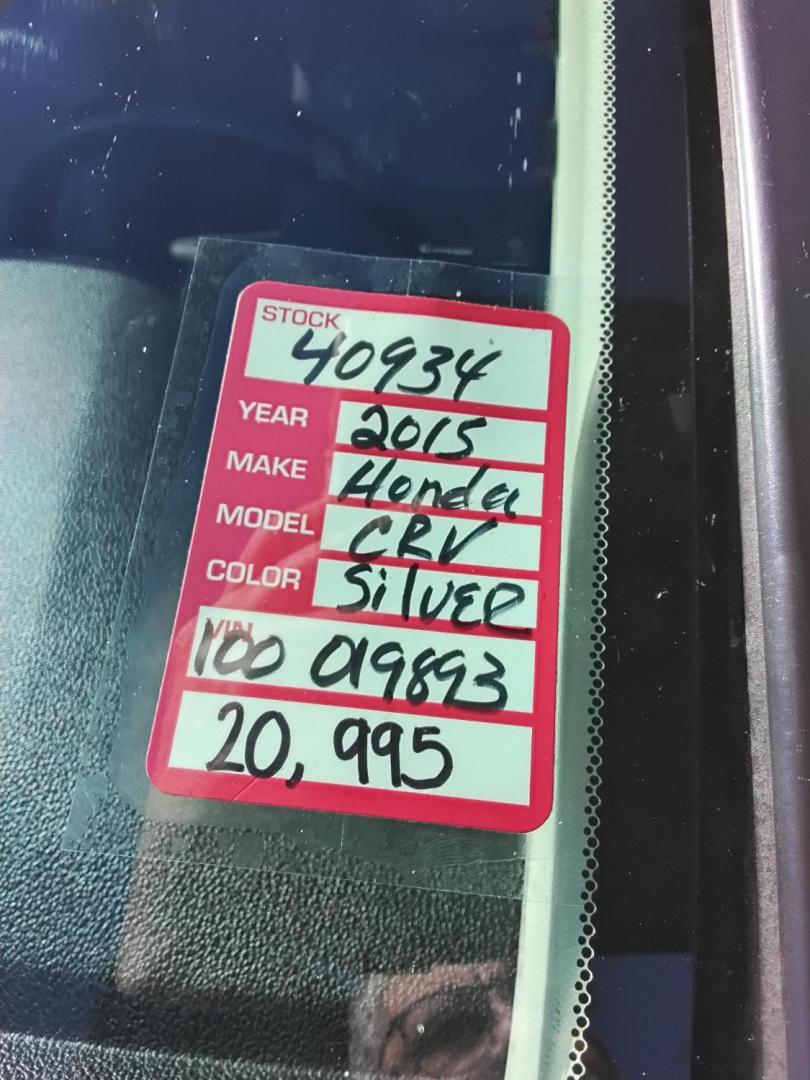 STOCK
40934
YEAR 2015
MAKE Honda
MODEL CRV
COLOR SilVER
VIN
100 019893
20,995